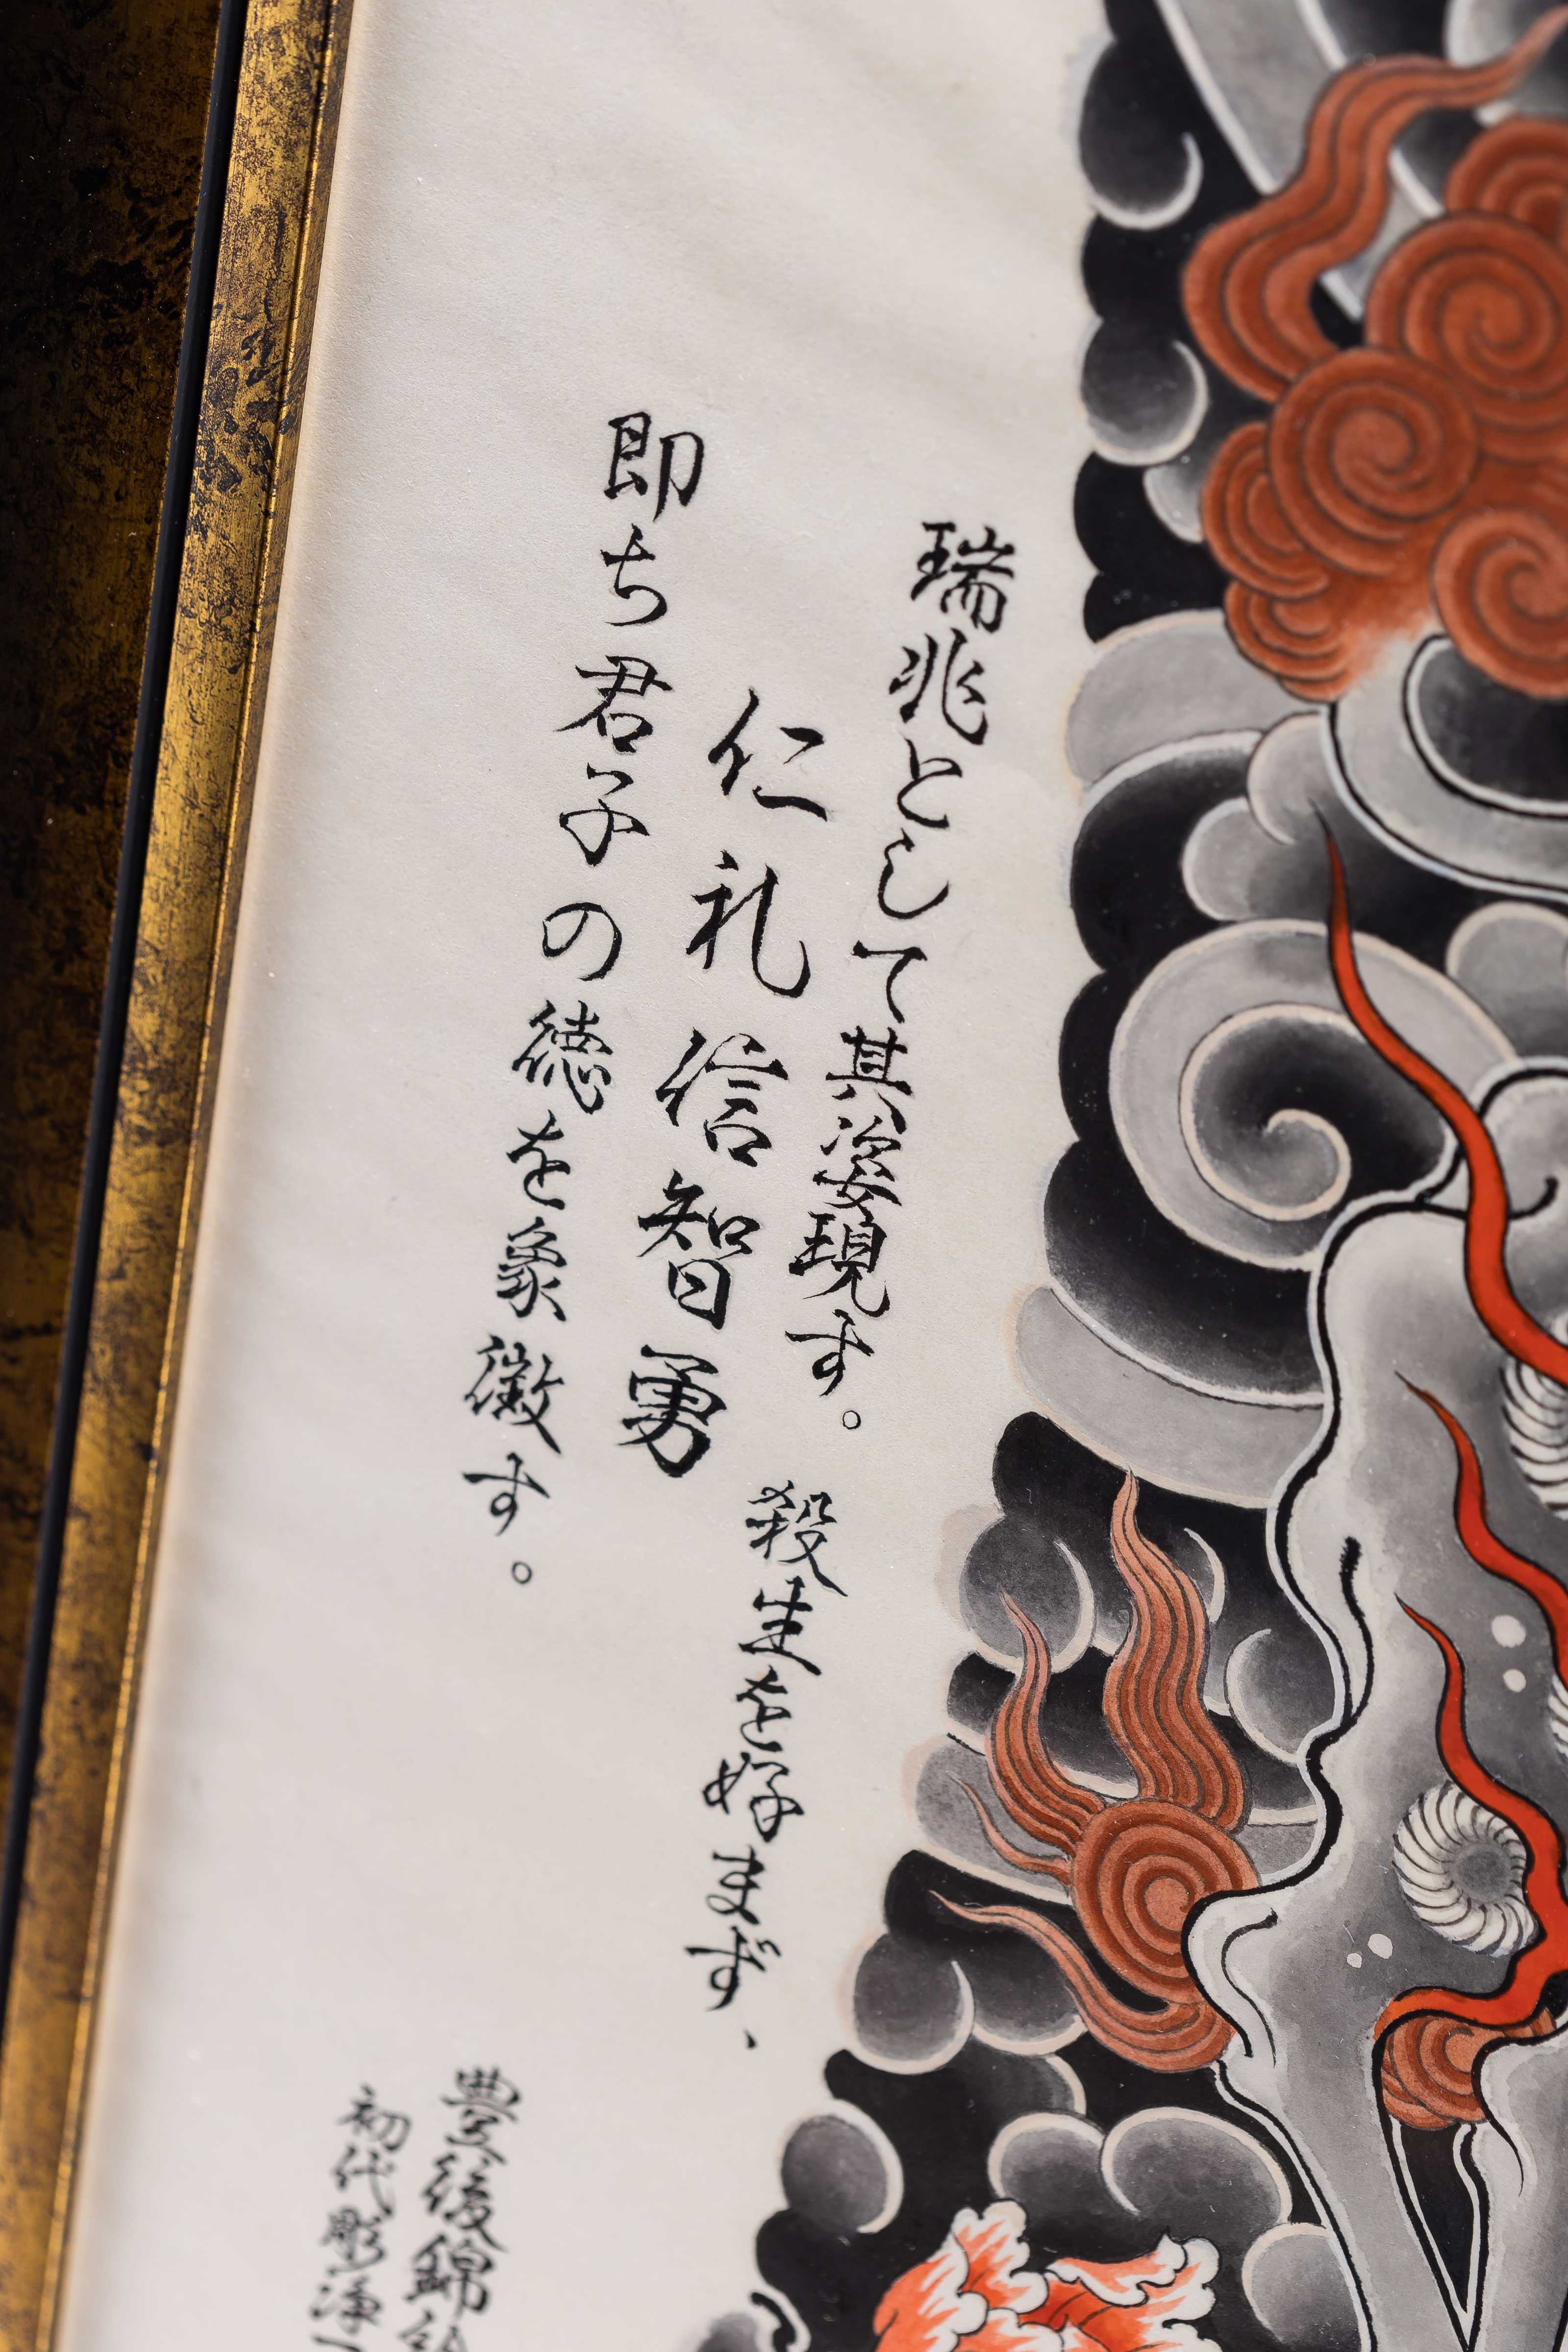 瑞兆として其姿現す。
殺生を好まず、
仁礼信智勇
即ち君子の徳を象徴す。
豊後錦
初代彫浄